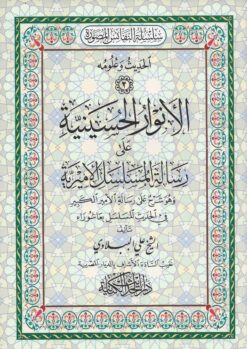 سلسلة النفائس المصورة
الحديث وعلومه
٢
الأنوار الحسينية
على
رسالة المسلسل الأميرية
وهو شرح على رسالة الأمير الكبير
في الحديث المسلسل بعاشوراء
تأليف
الشيخ علي الببلاوي
نقيب السادة الأشراف بالديار المصرية